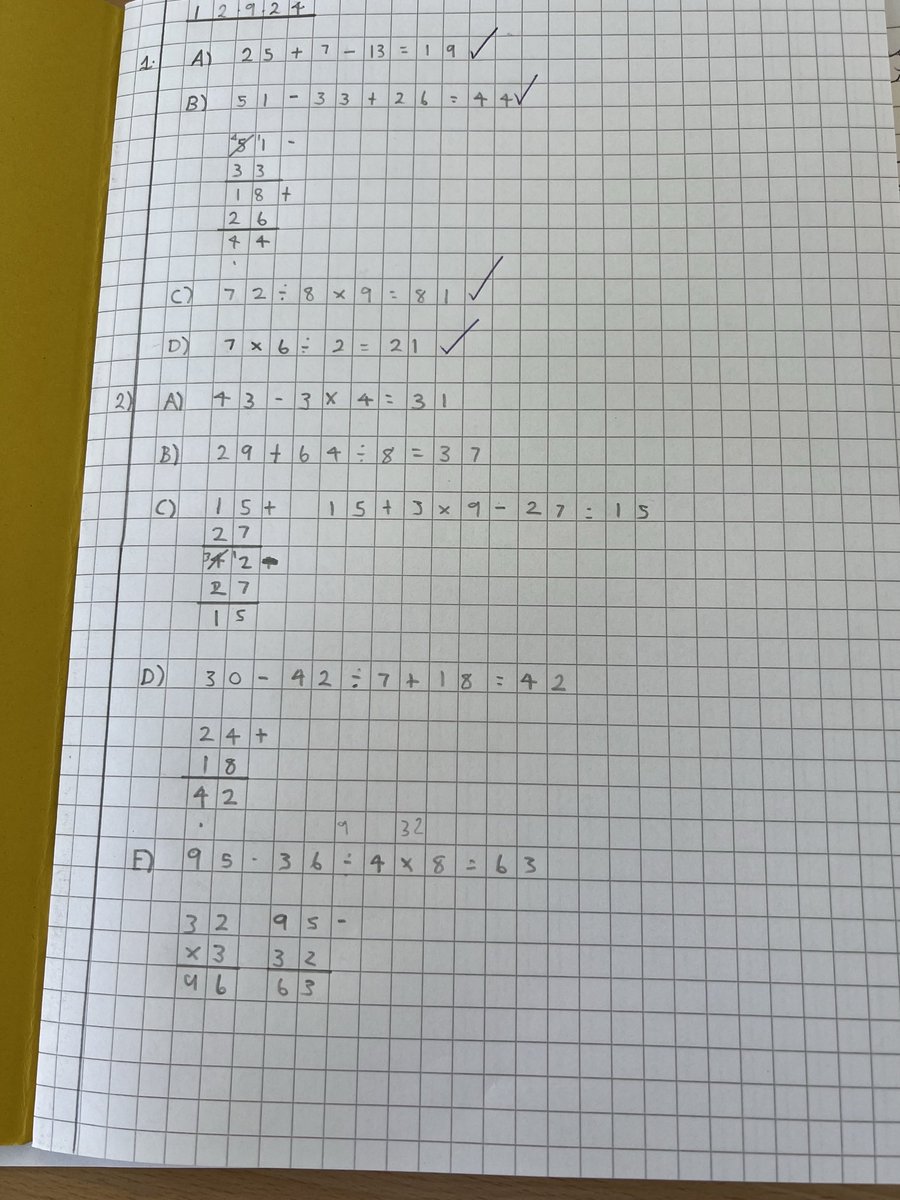 12924
1. A) 25 + 7 - 13 = 19 ✓
B) 51 - 33 + 26 = 44 ✓
4 5 11 -
33
18 +
26
44
C) 72 ÷ 8 × 9 = 81 ✓
D) 7 × 6 ÷ 2 = 21 ✓
2) A) 43 - 3 × 4 = 31
B) 29 + 64 ÷ 8 = 37
C) 15 + 15 + 3 × 9 - 27 = 15
27
3 4 12 -
27
15
D) 30 - 42 ÷ 7 + 18 = 42
24 +
18
42
9 32
E) 95 - 36 ÷ 4 × 8 = 63
32 95 -
×3 32
96 63